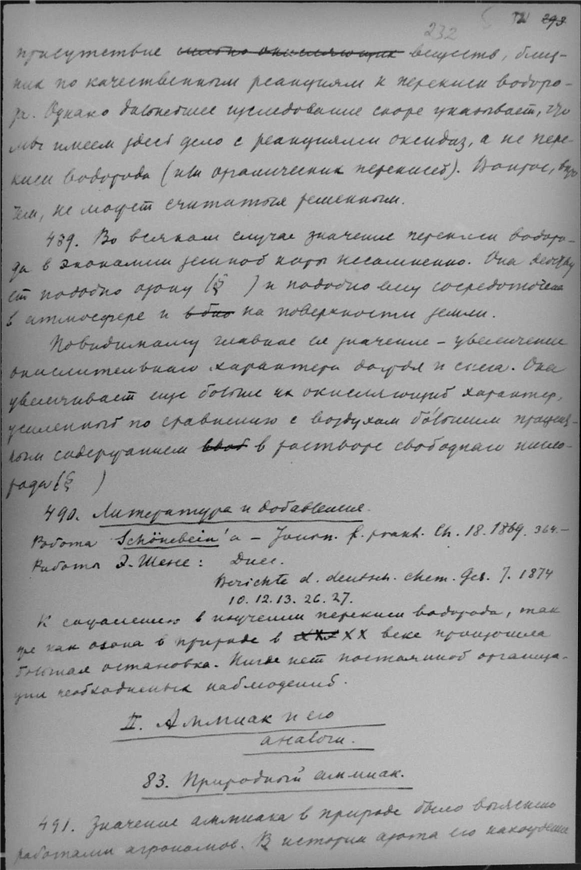 232 12 293
присутствие сильно окисляющих веществ, близ-
ких по качественным реакциям к перекиси водоро-
да. Однако дальнейшее исследование скоре указывает, что
мы имеем здесь дело с реакциями оксидаз, а не пере-
киси водорода (или органических перекисей). Вопрос,
тем, не может считаться решенным.
489. Во всяком случае значение перекиси водоро-
да в экономии земной коры несомненно. Она
ет подобно озону (§ ) и подобно ему сосредоточена
в атмосфере и в био на поверхности земли.
Повидимому главное ее значение – увеличение
окислительного характера дождя и снега. Она
увеличивает еще больше их окисляющий характер,
усиленный по сравнению с воздухом бо́льшим процент-
ным содержанием в растворе свободного кисло-
рода (§ )
490. Литература и добавления.
Работа Schönbein'a – Journ. f. prakt. Ch. 18. 1869. 364.–
Работы Э. Шене: Diss.
Berichte d. deutsch. chem. Ges. 7. 1874
10. 12. 13. 26. 27.
К сожалению в изучении перекиси водорода, так
же как озона в природе в XIX XX веке произошла
большая остановка. Нигде нет постоянной организа-
ции необходимых наблюдений.
II. Аммиак и его
аналоги.
83. Природный аммиак.
491. Значение аммиака в природе было выяснено
работами агрономов. В истории азота его нахождение